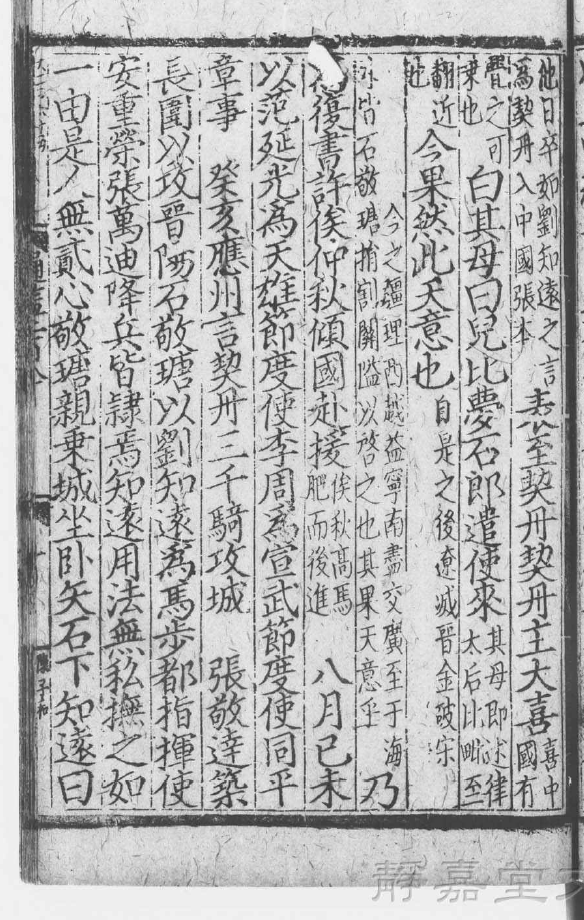 他日卒如劉知遠之言爲契丹入中國張本表至契丹契丹主大喜喜中國有
釁之可乘也白其母曰兒比夢石郎遣使來其母即述律太后比毗至
翻近也今果然此天意也自是之後遼滅晉金破宋
今之疆理西越益寧南盡交廣至于海外皆石敬瑭捐割關隘以啓之也其果天意乎乃
為復書許俟仲秋傾國赴援俟秋高馬肥而後進 八月己未
以范延光爲天雄節度使李周爲宣武節度使同平
章事 癸亥應州言契丹三千騎攻城 張敬達築
長圍以攻晉陽石敬瑭以劉知遠爲馬步都指揮使
安重榮張萬迪降兵皆隸焉知遠用法無私撫之如
一由是人無貳心敬瑭親乘城坐卧矢石下知遠曰
靜嘉堂